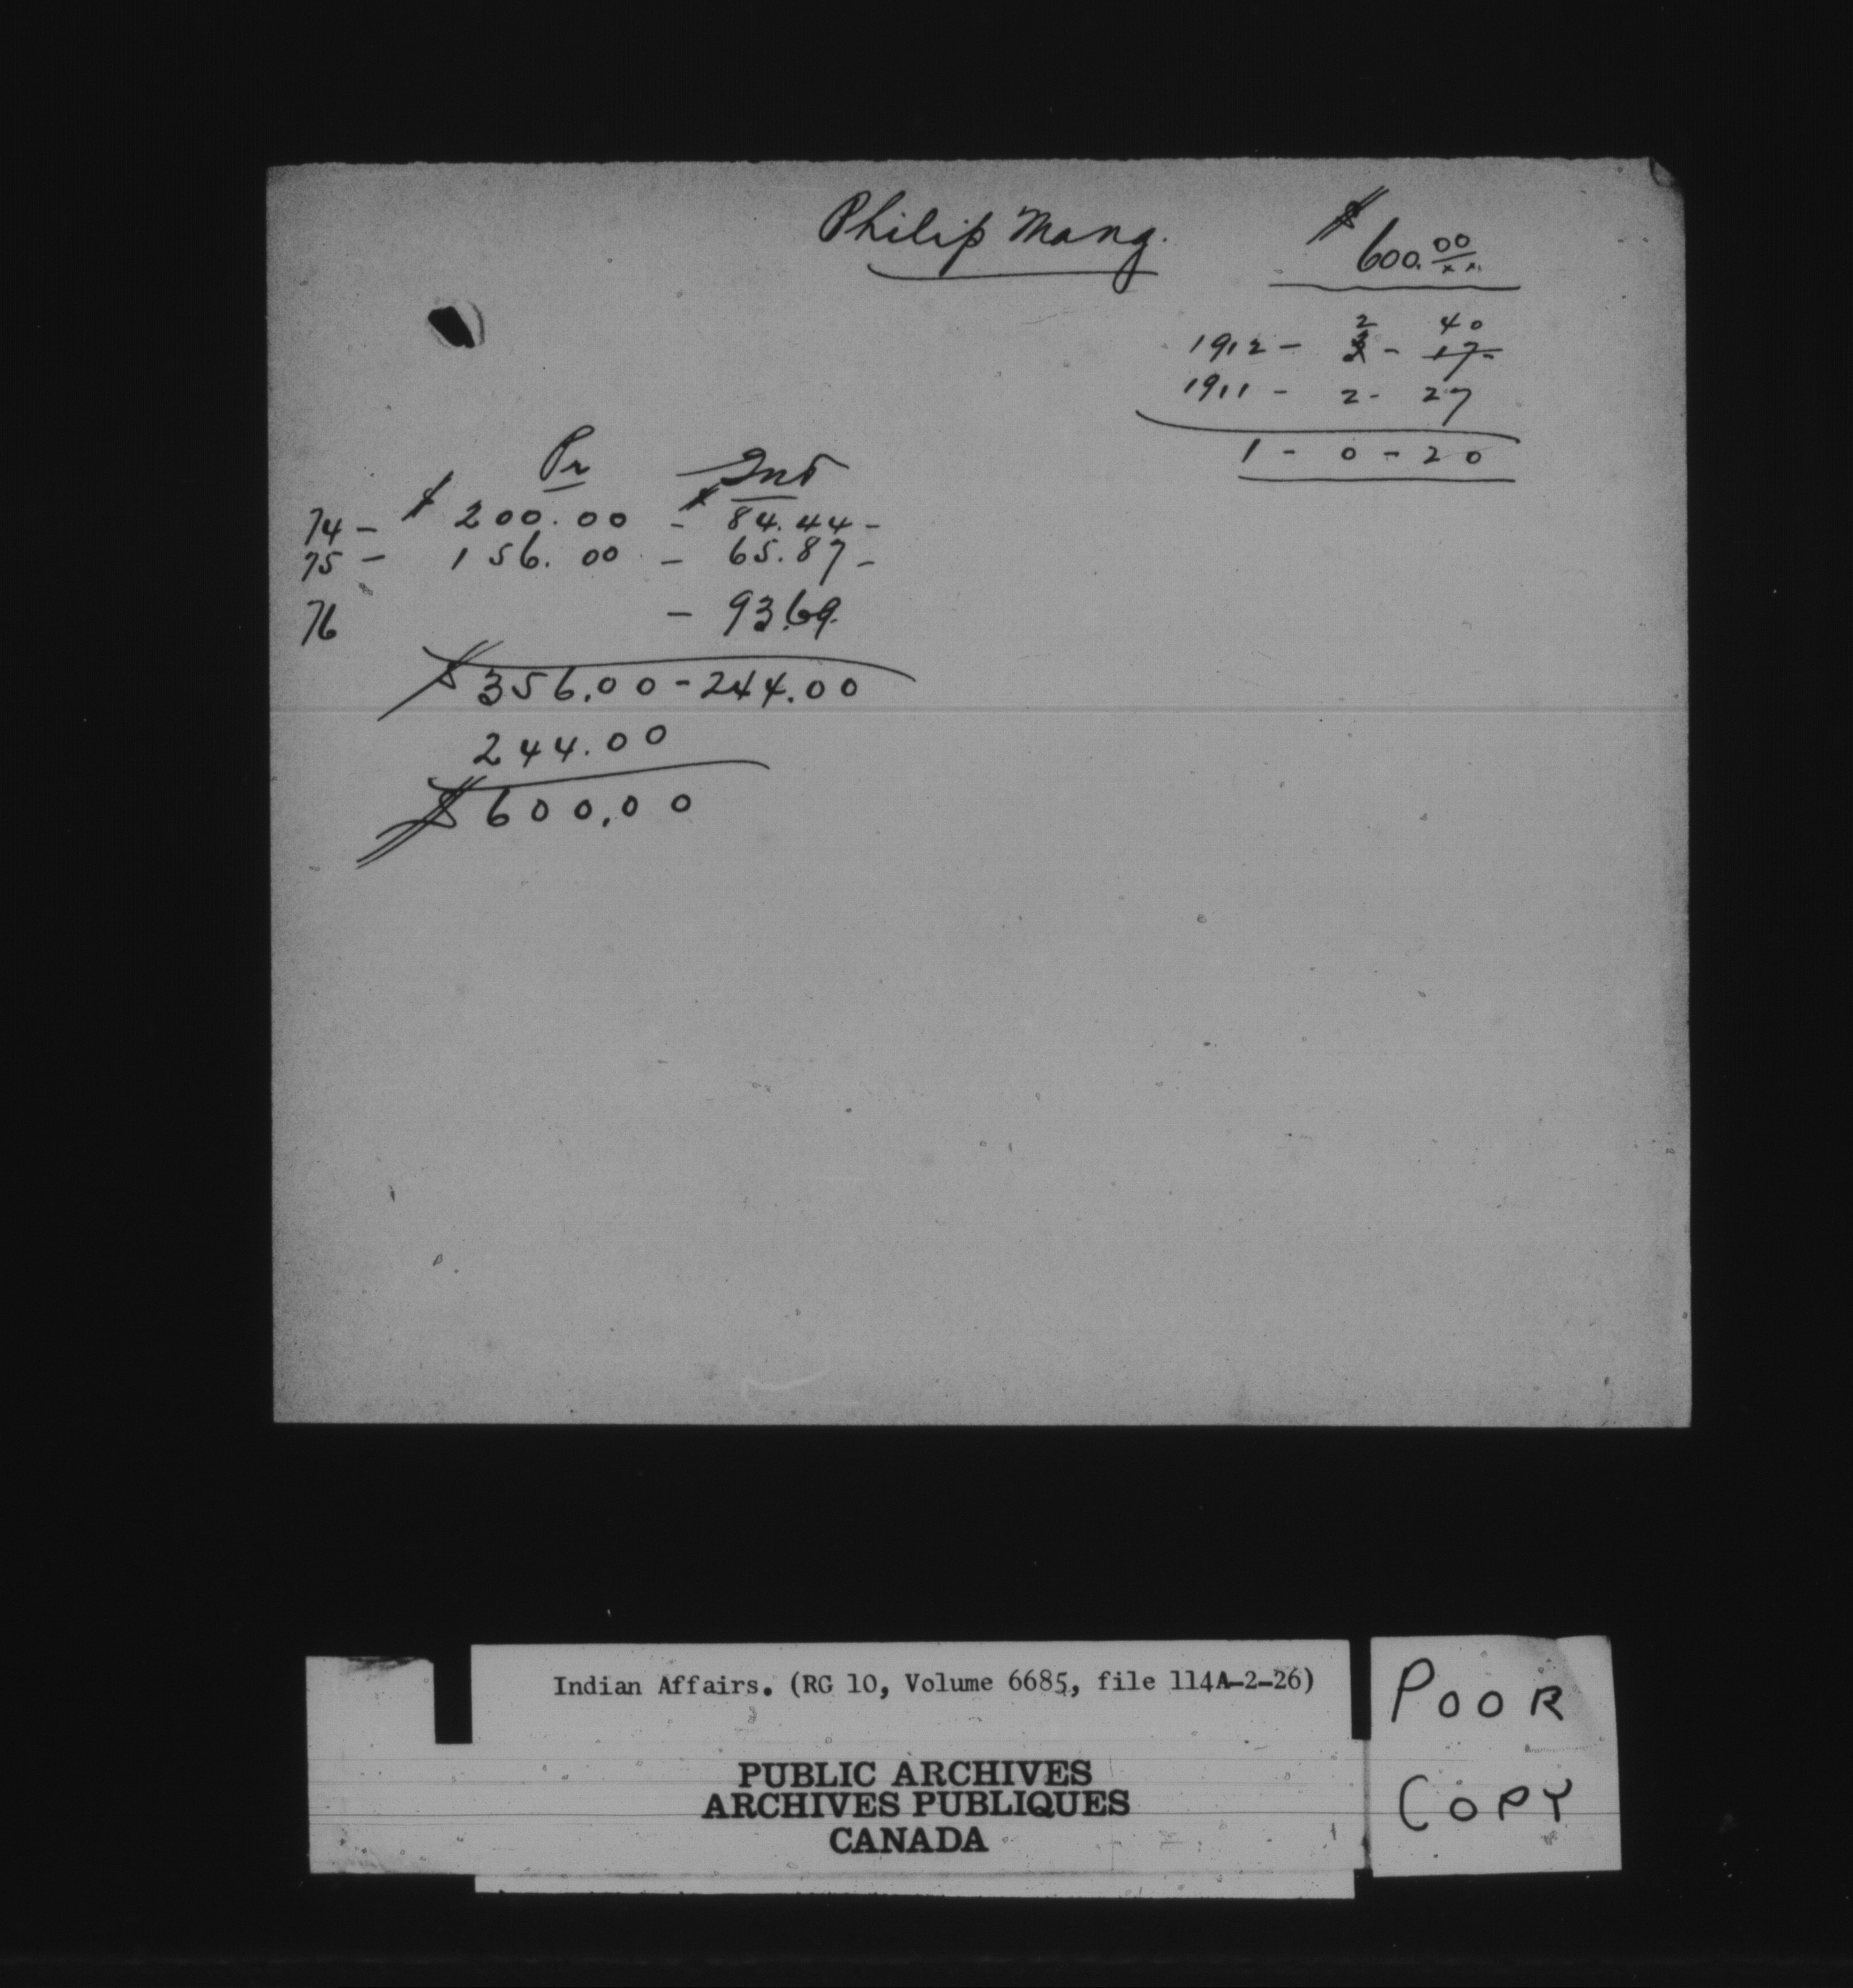 Philip Mang.
$ 600.00
xx
2 40
1912 - 3 - 17-
1911 - 2 - 27
1 - 0 - 20
Pr Int
74 - $ 200.00 - $ 84.44 -
75 - 156.00 - 65.87 -
76 - 93.69.
$ 356.00 - 244.00
244.00
$ 600.00
Indian Affairs. (RG 10, Volume 6685, file 114A-2-26)
PUBLIC ARCHIVES
ARCHIVES PUBLIQUES
CANADA
POOR
COPY